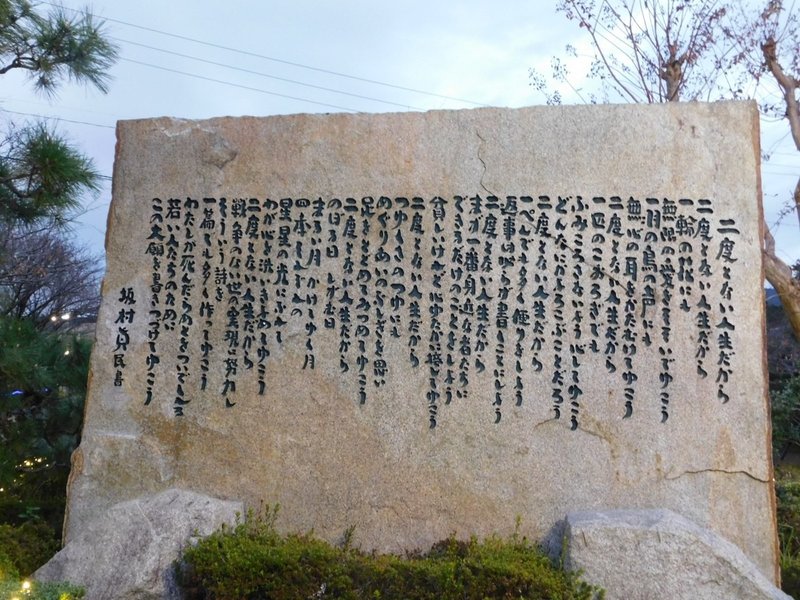 二度とない人生だから
二度とない人生だから
一輪の花にも
無限の愛をそそいでゆこう
一羽の鳥の声にも
無心の耳をかたむけてゆこう
二度とない人生だから
一匹のこおろぎでも
ふみころさないよう心してゆこう
どんなにかよろこぶことだろう
二度とない人生だから
一ぺんでも多く便りをしよう
返事は必ず書くことにしよう
二度とない人生だから
まず一番身近な者たちに
できるだけのことをしよう
貧しいけれど心ゆたかに接してゆこう
二度とない人生だから
つゆくさのつゆにも
めぐりあいのふしぎを思い
足をとどめてみつめてゆこう
二度とない人生だから
のぼる日 しずむ日
まるい月 かけてゆく月
四季それぞれの
星星の光にふれて
わが心を洗いきよめてゆこう
二度とない人生だから
戦争のない世の実現に努力し
そういう詩を
一篇でも多く作ってゆこう
わたしが死んだらあとをついでくれる
若い人たちのために
この大願を書きつづけてゆこう
坂村真民書